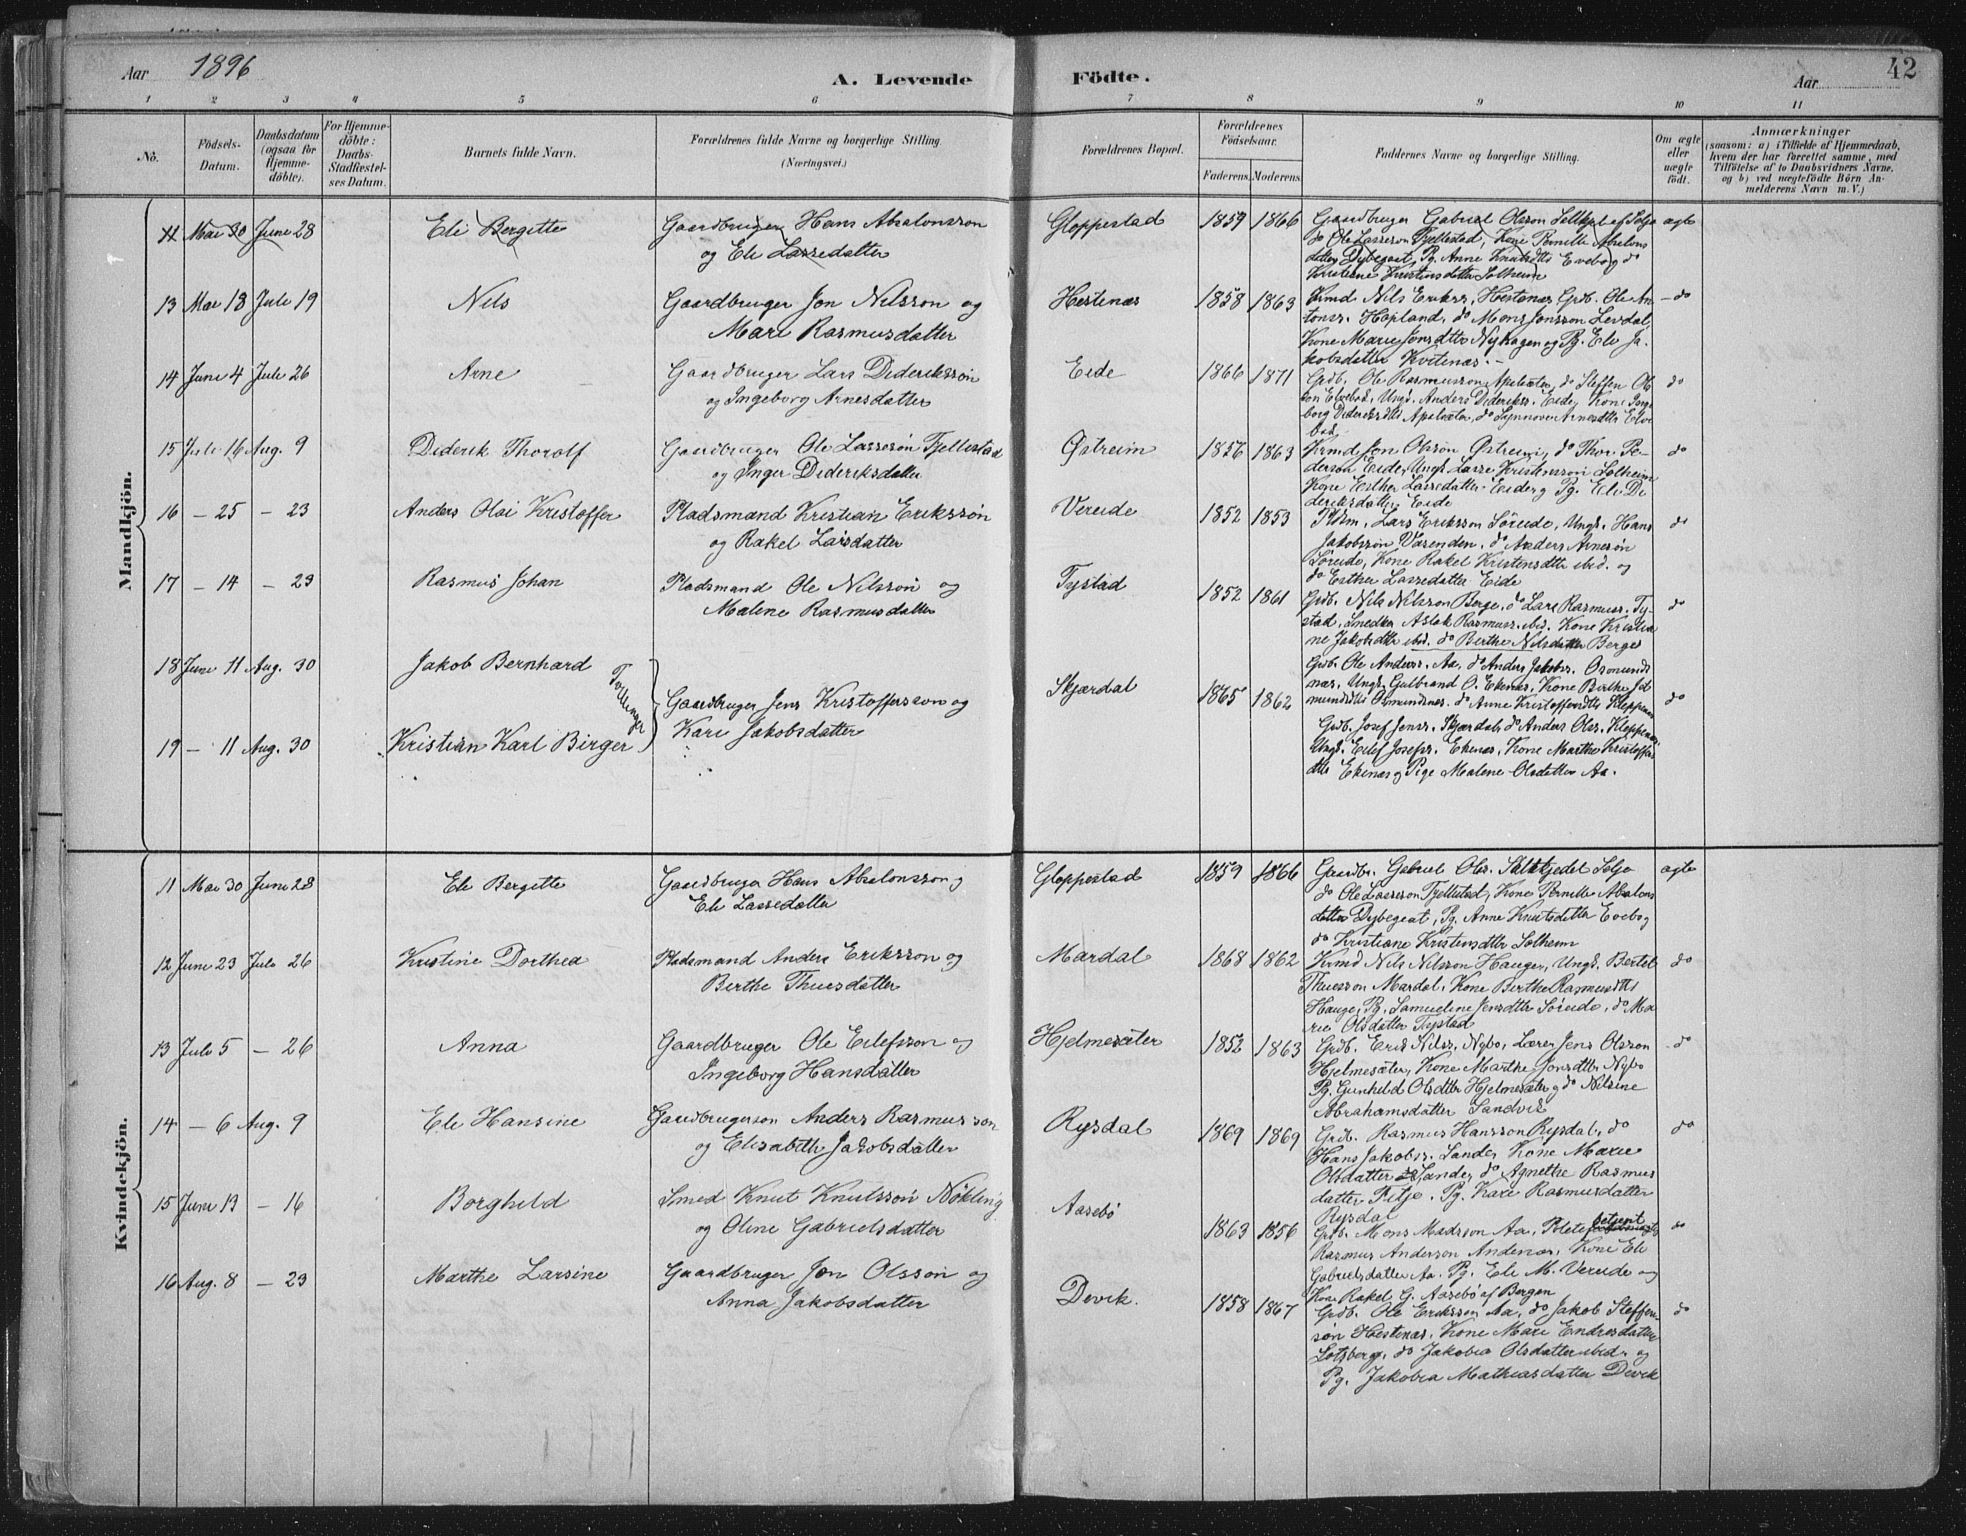 Aar 1896
A. Levende
Födte.
Aar
42
1 2 3 4 5 6 7 8 9 10 11
No.
Födsels-Datum.
Daabsdatum (ogsaa for Hjemme-döbte).
For Hjemme-döbte: Daabs-Stadfæstel-ses Datum.
Barnets fulde Navn.
Forældrenes fulde Navne og borgerlige Stilling.
(Næringsvei.)
Forældrenes Bopæl.
Forældrenes Födselsaar.
Faderens.
Moderens.
Faddernes Navne og borgerlige Stilling.
Om ægte eller uægte födt.
Anmærkninger
(saasom: a) i Tilfælde af Hjemmedaab,
hvem der har forrettet samme, med
Tilföielse af to Daabsvidners Navne,
og b) ved uægtefödte Börn An-
melderens Navn m. V.)
Mandkjön.
11 Mai 30 Juni 28 Eli Bergitte Gaardbruger Hans Absalonssøn
og Eli Lassedatter
Gloppestad 1859 1866 Gaardbruger Gabriel Olsson af Selje ægte
do Ole Lassesøn Fjellestad, Kone Pernille Absalons
datter Dybegeat, Pg. Anne Knutsdtt Evebø og do
Kristiane Kristensdatter Solheim
13 Mai 13 Juli 19 Nils Gaardbruger Jon Nilssøn og
Mari Rasmusdatter
Hestenæs 1858 1863 Krmd Nils Eriks., Hestenæs, Grdb. Ole An- do
tons. Hopland, do Mons Jonssøn Levdal,
Kone Marie Jonsdtt Nyhagen og Pg. Eli Ja-
kobsdatter Kvitenæs.
14 Juni 4 Juli 26 Arne Gaardbruger Lars Dideriksson
og Ingeborg Arnesdatter
Eide 1866 1871 Grdb. Ole Rasmusson Apalsæter, do Steffen Ol- do
son Elvebod, Ungk. Anders Dideriks. Eide, Kone Inge-
borg Dideriksdtt Apalsæter, do Synnøve Arnesdtt Elve-
bod.
15 Juli 16 Aug. 9 Diderik Thorolf Gaardbruger Ole Lassesøn Fjellestad
og Inger Dideriksdatter
Østreim 1856 1863 Krmd Jon Olsøn, Østreim, do Thor Pe- do
dersøn Eide, Ungk. Lasse Kristenssøn Solheim
Kone Esther Lassedatter Eide og Pg. Eli Di-
deriksdatter Eide
16 — 25 — 23 Anders Olai Kristoffer Pladsmand Kristian Erikssøn
og Rakel Larsdatter
Vereide 1852 1853 Pldsm. Lars Eriksson Søreide, Ungk. Hans do
Jakobssøn Vasenden, do Anders Arnesøn
Søreide, Kone Rakel Kristensdtt ibid. og
do Esther Lassedatter Eide
17 — 14 — 23 Rasmus Johan Pladsmand Ole Nilsson og
Malene Rasmusdatter
Tystad 1852 1861 Grdb. Nils Nilsson Berge, do Lars Rasmuss. Ty- do
stad, Snedker Aslak Rasmuss. ibid. Kone Kristia-
ne Jakobsdtt ibid. do Berthe Nilsdatter Berge
18 Juni 11 Aug. 30 Jakob Bernhard
Tvillinger
Gaardbruger Jens Kristofferssøn og
Kari Jakobsdatter
Skjærdal 1865 1862 Grdb. Ole Anders. Aa, do Anders Jakobs. Osmunds- do
næs, Ungk. Gulbrand O. Ekenæs, Kone Birthe
Osmundnæs, do Anne Kristoffersdtt Kleppenæs
19 — 11 Aug. 30 Kristian Karl Birger
Grdb. Josef Jens. Skjærdal, do Anders Ols. Kleppenæs,
Ungk. Eilef Josefs. Ekenæs, Kone Marthe Kristoffers-
dtt Ekenæs og Pige Malene Olsdatter Aa.
Kvindekjön.
11 Mai 30 Juni 28 Eli Bergitte Gaardbruger Hans Absalonsson og
Eli Lassedatter
Gloppestad 1859 1866 Gaardbr. Gabriel Ols. Selje ægte
do Ole Lassesson Fjellestad, Kone Pernille Absalons
datter Dybegeat, Pg. Anne Knutsdatter Evebø og
do Kristiane Kristensdtt Solheim
12 Juni 23 Juli 26 Kristine Dorthea Pladsmand Anders Eriksson og
Berthe Thuesdatter
Mardal 1868 1862 Krmd Nils Nilsson Hauge, Ungk. Bertel do
Thuesson Mardal, Kone Birthe Rasmusdtt
Hauge, Pg. Samueline Jensdtt Søreide, do Ma-
rie Olsdatter Tystad
13 Juli 5 — 26 Anna Gaardbruger Ole Eilefsson og
Ingeborg Hansdatter
Hjelmesæter 1852 1863 Grdb. Erik Nils. Nybø, Lærer Jens Olsson do
Hjelmesæter, Kone Marthe Jonsdtt Nybø
Pg. Gunhild Olsdtt Hjelmesæter og do Nilsine
Abrahamsdatter Sandvik
14 — 6 Aug. 9 Eli Hansine Gaardbrugersøn Anders Rasmussøn
og Elisabeth Jakobsdatter
Rysdal 1869 1869 Grdb. Rasmus Hansson Rysdal, do do
Hans Jakobs. Sande, Kone Marie
Olsdatter Sande, do Agnethe Rasmus
datter Fitje, Pg. Kari Rasmusdatter
Rysdal
15 Juni 13 — 16 Borghild Smed Knut Knutssøn Nøkling
og Oline Gabrielsdatter
Aasebø 1863 1856 Grdb. Mons Madsson Aa, Politibetjent do
Rasmus Anderson Andenæs, Kone Eli
Gabrielsdatter Aa. Pg. Eli M. Vereide og
Kone Rakel G. Aasebø af Bergen
16 Aug. 8 — 23 Marthe Larsine Gaardbruger Jon Olsson og
Anna Jakobsdatter
Devik. 1858 1867 Grdb. Ole Eriksson Aa, do Jakob Steffen- do
søn Hestenæs, Kone Mari Endresdatter
Lotsberg, do Jakobia Olsdatter ibid. og
Pg. Jakobia Mathiasdatter Devik